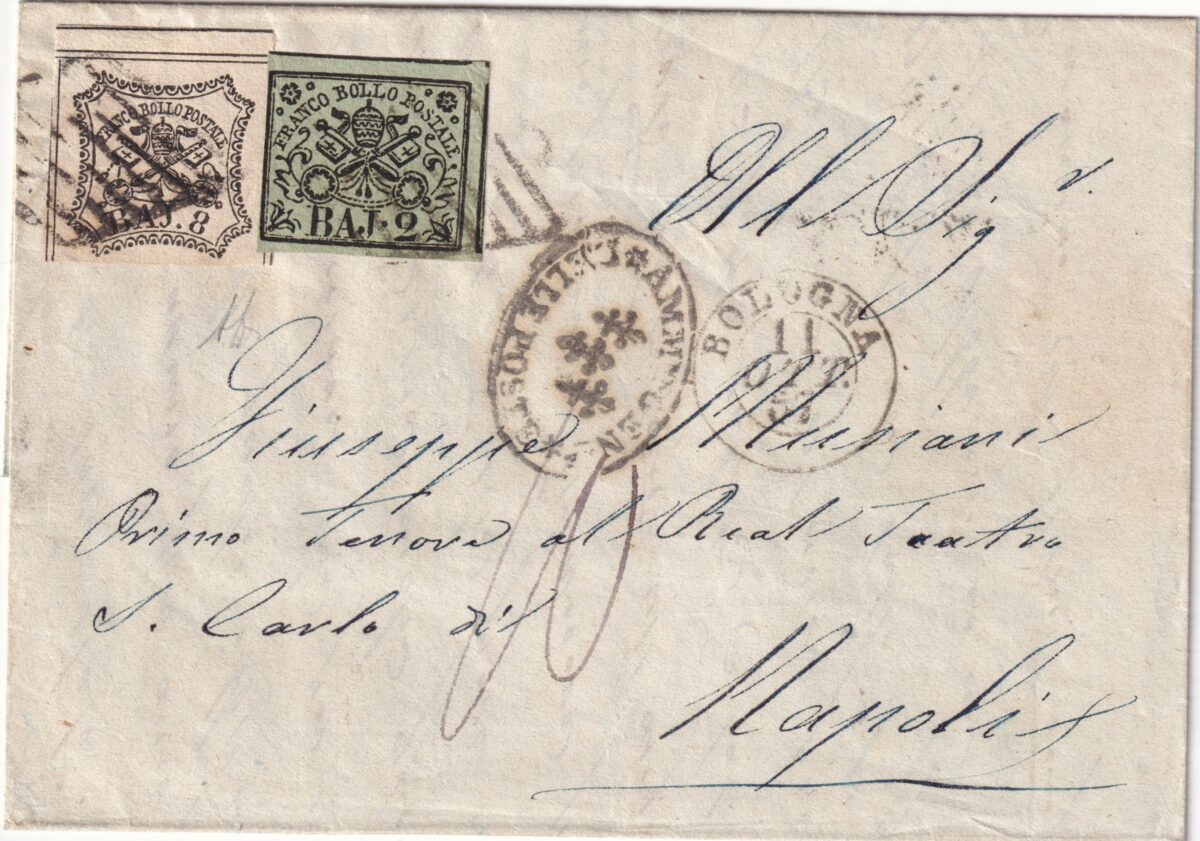 FRANCO BOLLO POSTALE
BAJ. 8
FRANCO BOLLO POSTALE
BAJ. 2
All Sigr.
DELLE POSTE
BOLOGNA
11
OTT.
57
Giuseppe Musiani
Primo Tenore al Real Teatro
S. Carlo di
Napoli